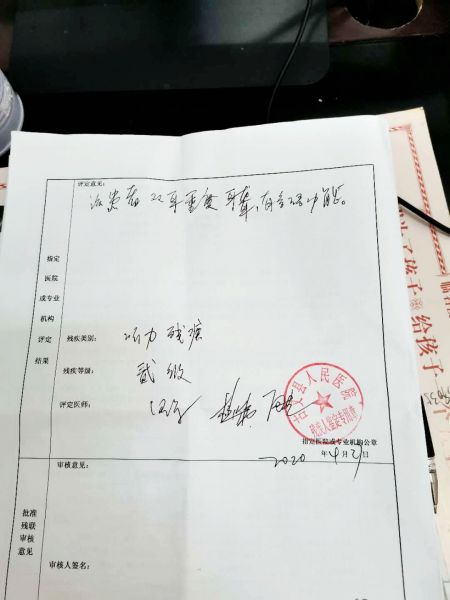 评定意见:
该患者双耳重度耳聋,有言语功能。
指定
医院
或专业
机构
评定
结果
残疾类别:
听力残疾
残疾等级:
贰级
评定医师:
县人民医院
残疾人鉴定专用章
指定医院或专业机构公章
2020年4月21日
批准
残联
审核
意见
审核意见:
审核人签名:
孩子
给孩子